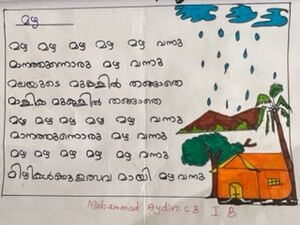 മഴ
മഴ മഴ മഴ മഴ മഴ വന്നു
മാനത്തുന്നൊരു മഴ വന്നു
മലയുടെ മുകളിൽ തങ്ങാതെ
മാളിക മുകളിൽ തങ്ങാതെ
മഴ മഴ മഴ മഴ മഴ വന്നു
മാനത്തുന്നൊരു മഴ വന്നു
മഴ മഴ മഴ മഴ മഴ വന്നു
മിഴികൾക്കുത്സവ മായി മഴ വന്നു
Mohammed Aydin. C B I B